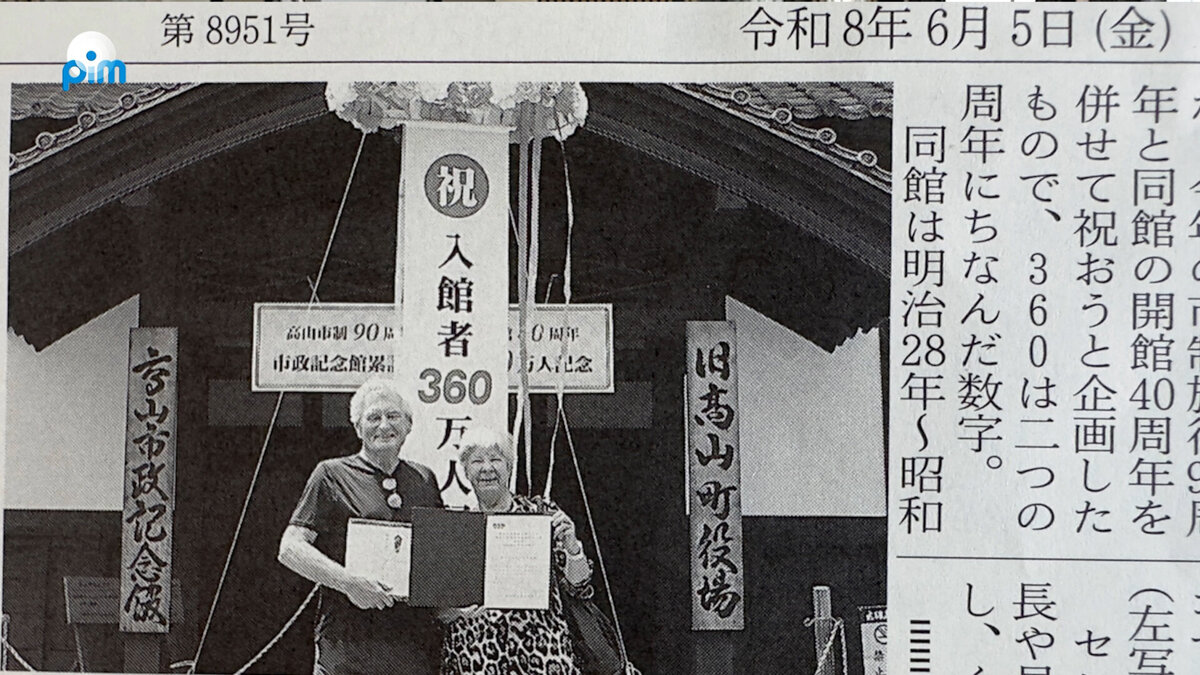 第8951号
令和8年6月5日(金)
pim
年と同館の開館40周年を
併せて祝おうと企画した
もので、360は二つの
周年にちなんだ数字。
同館は明治28年〜昭和
(左写
セ
し、
祝
入館者
360
万
高山市制90周
0周年
市政記念館累
万人記念
高山市政記念館
旧高山町役場